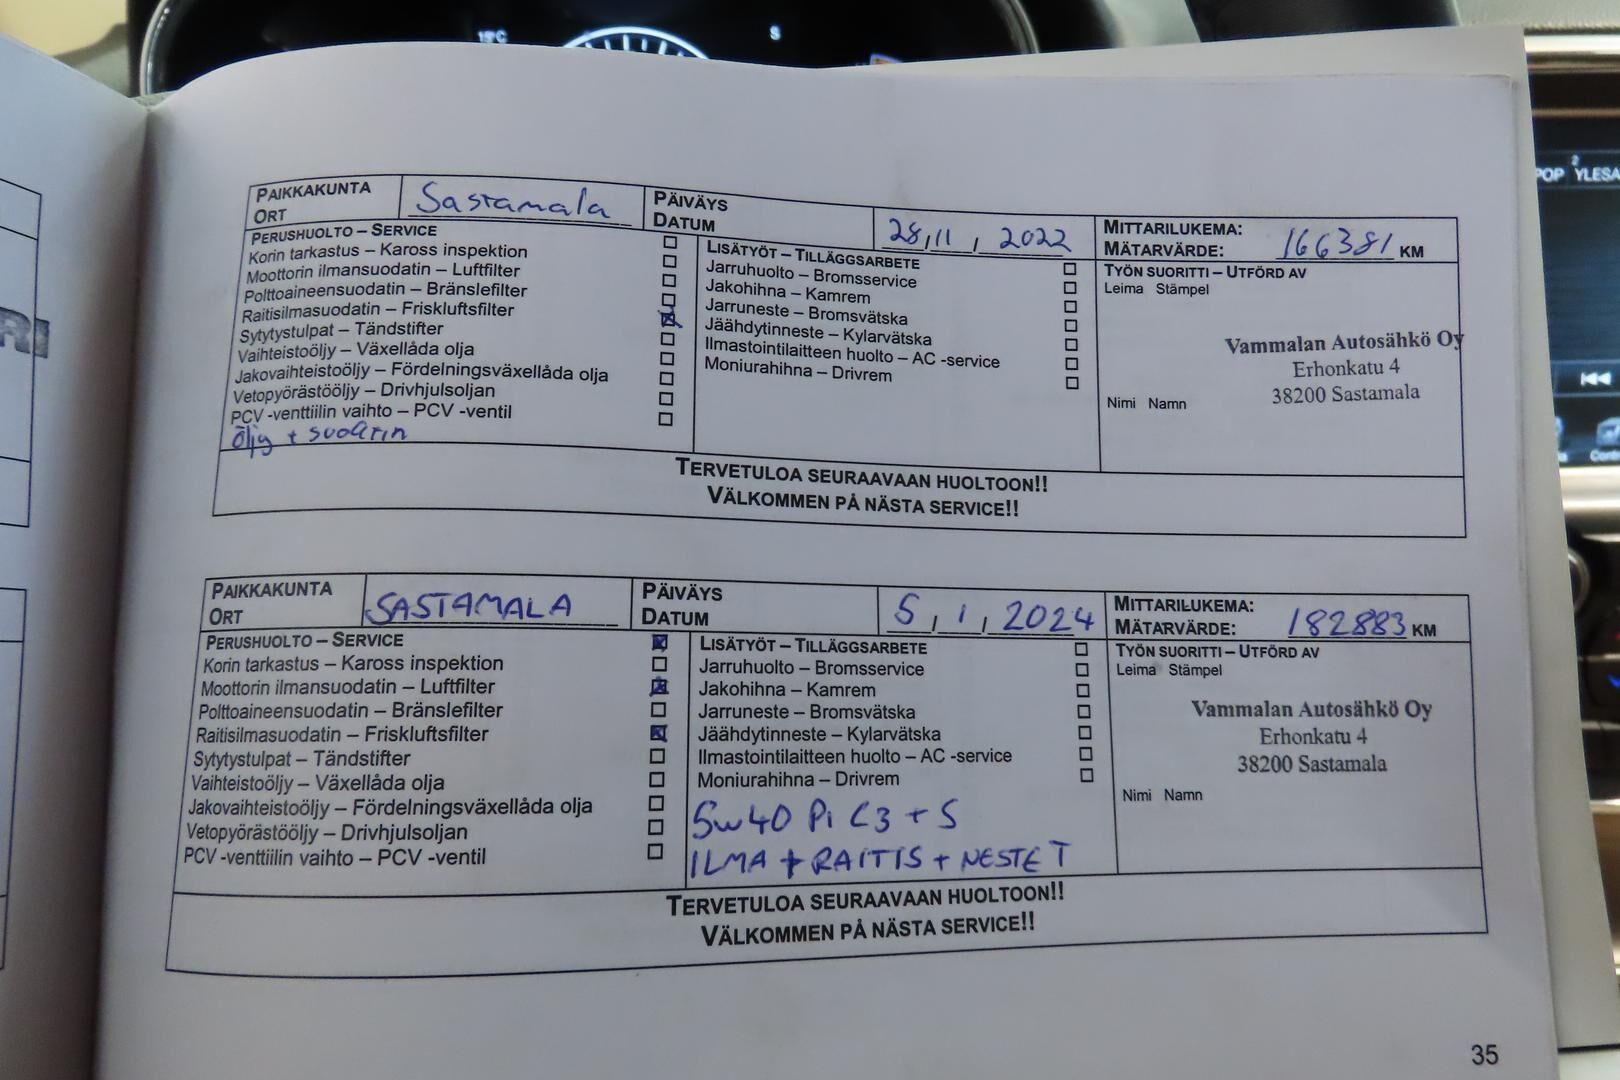 15°C
S
RI
PAIKKAKUNTA
ORT
Sastamala
PÄIVÄYS
DATUM
28,11, 2022
MITTARILUKEMA:
MÄTARVÄRDE: 166381 KM
PERUSHUOLTO – SERVICE
Korin tarkastus – Kaross inspektion
Moottorin ilmansuodatin – Luftfilter
Polttoaineensuodatin – Bränslefilter
Raitisilmasuodatin – Friskluftsfilter
Sytytystulpat – Tändstifter
Vaihteistoöljy – Växellåda olja
Jakovaihteistoöljy – Fördelningsväxellåda olja
Vetopyörästööljy – Drivhjulsoljan
PCV -venttiilin vaihto – PCV -ventil
Öljy + suodatin
LISÄTYÖT – TILLÄGGSARBETE
Jarruhuolto – Bromsservice
Jakohihna – Kamrem
Jarruneste – Bromsvätska
Jäähdytinneste – Kylarvätska
Ilmastointilaitteen huolto – AC -service
Moniurahihna – Drivrem
TYÖN SUORITTI – UTFÖRD AV
Leima Stämpel
Vammalan Autosähkö Oy
Erhonkatu 4
38200 Sastamala
Nimi Namn
TERVETULOA SEURAAVAAN HUOLTOON!!
VÄLKOMMEN PÅ NÄSTA SERVICE!!
PAIKKAKUNTA
ORT
SASTAMALA
PÄIVÄYS
DATUM
5, 1, 2024
MITTARILUKEMA:
MÄTARVÄRDE: 182883 KM
PERUSHUOLTO – SERVICE
Korin tarkastus – Kaross inspektion
Moottorin ilmansuodatin – Luftfilter
Polttoaineensuodatin – Bränslefilter
Raitisilmasuodatin – Friskluftsfilter
Sytytystulpat – Tändstifter
Vaihteistoöljy – Växellåda olja
Jakovaihteistoöljy – Fördelningsväxellåda olja
Vetopyörästööljy – Drivhjulsoljan
PCV -venttiilin vaihto – PCV -ventil
LISÄTYÖT – TILLÄGGSARBETE
Jarruhuolto – Bromsservice
Jakohihna – Kamrem
Jarruneste – Bromsvätska
Jäähdytinneste – Kylarvätska
Ilmastointilaitteen huolto – AC -service
Moniurahihna – Drivrem
5w40 Pi C3 + S
ILMA + RAITIS + NESTET
TYÖN SUORITTI – UTFÖRD AV
Leima Stämpel
Vammalan Autosähkö Oy
Erhonkatu 4
38200 Sastamala
Nimi Namn
TERVETULOA SEURAAVAAN HUOLTOON!!
VÄLKOMMEN PÅ NÄSTA SERVICE!!
35
POP
2
YLESA